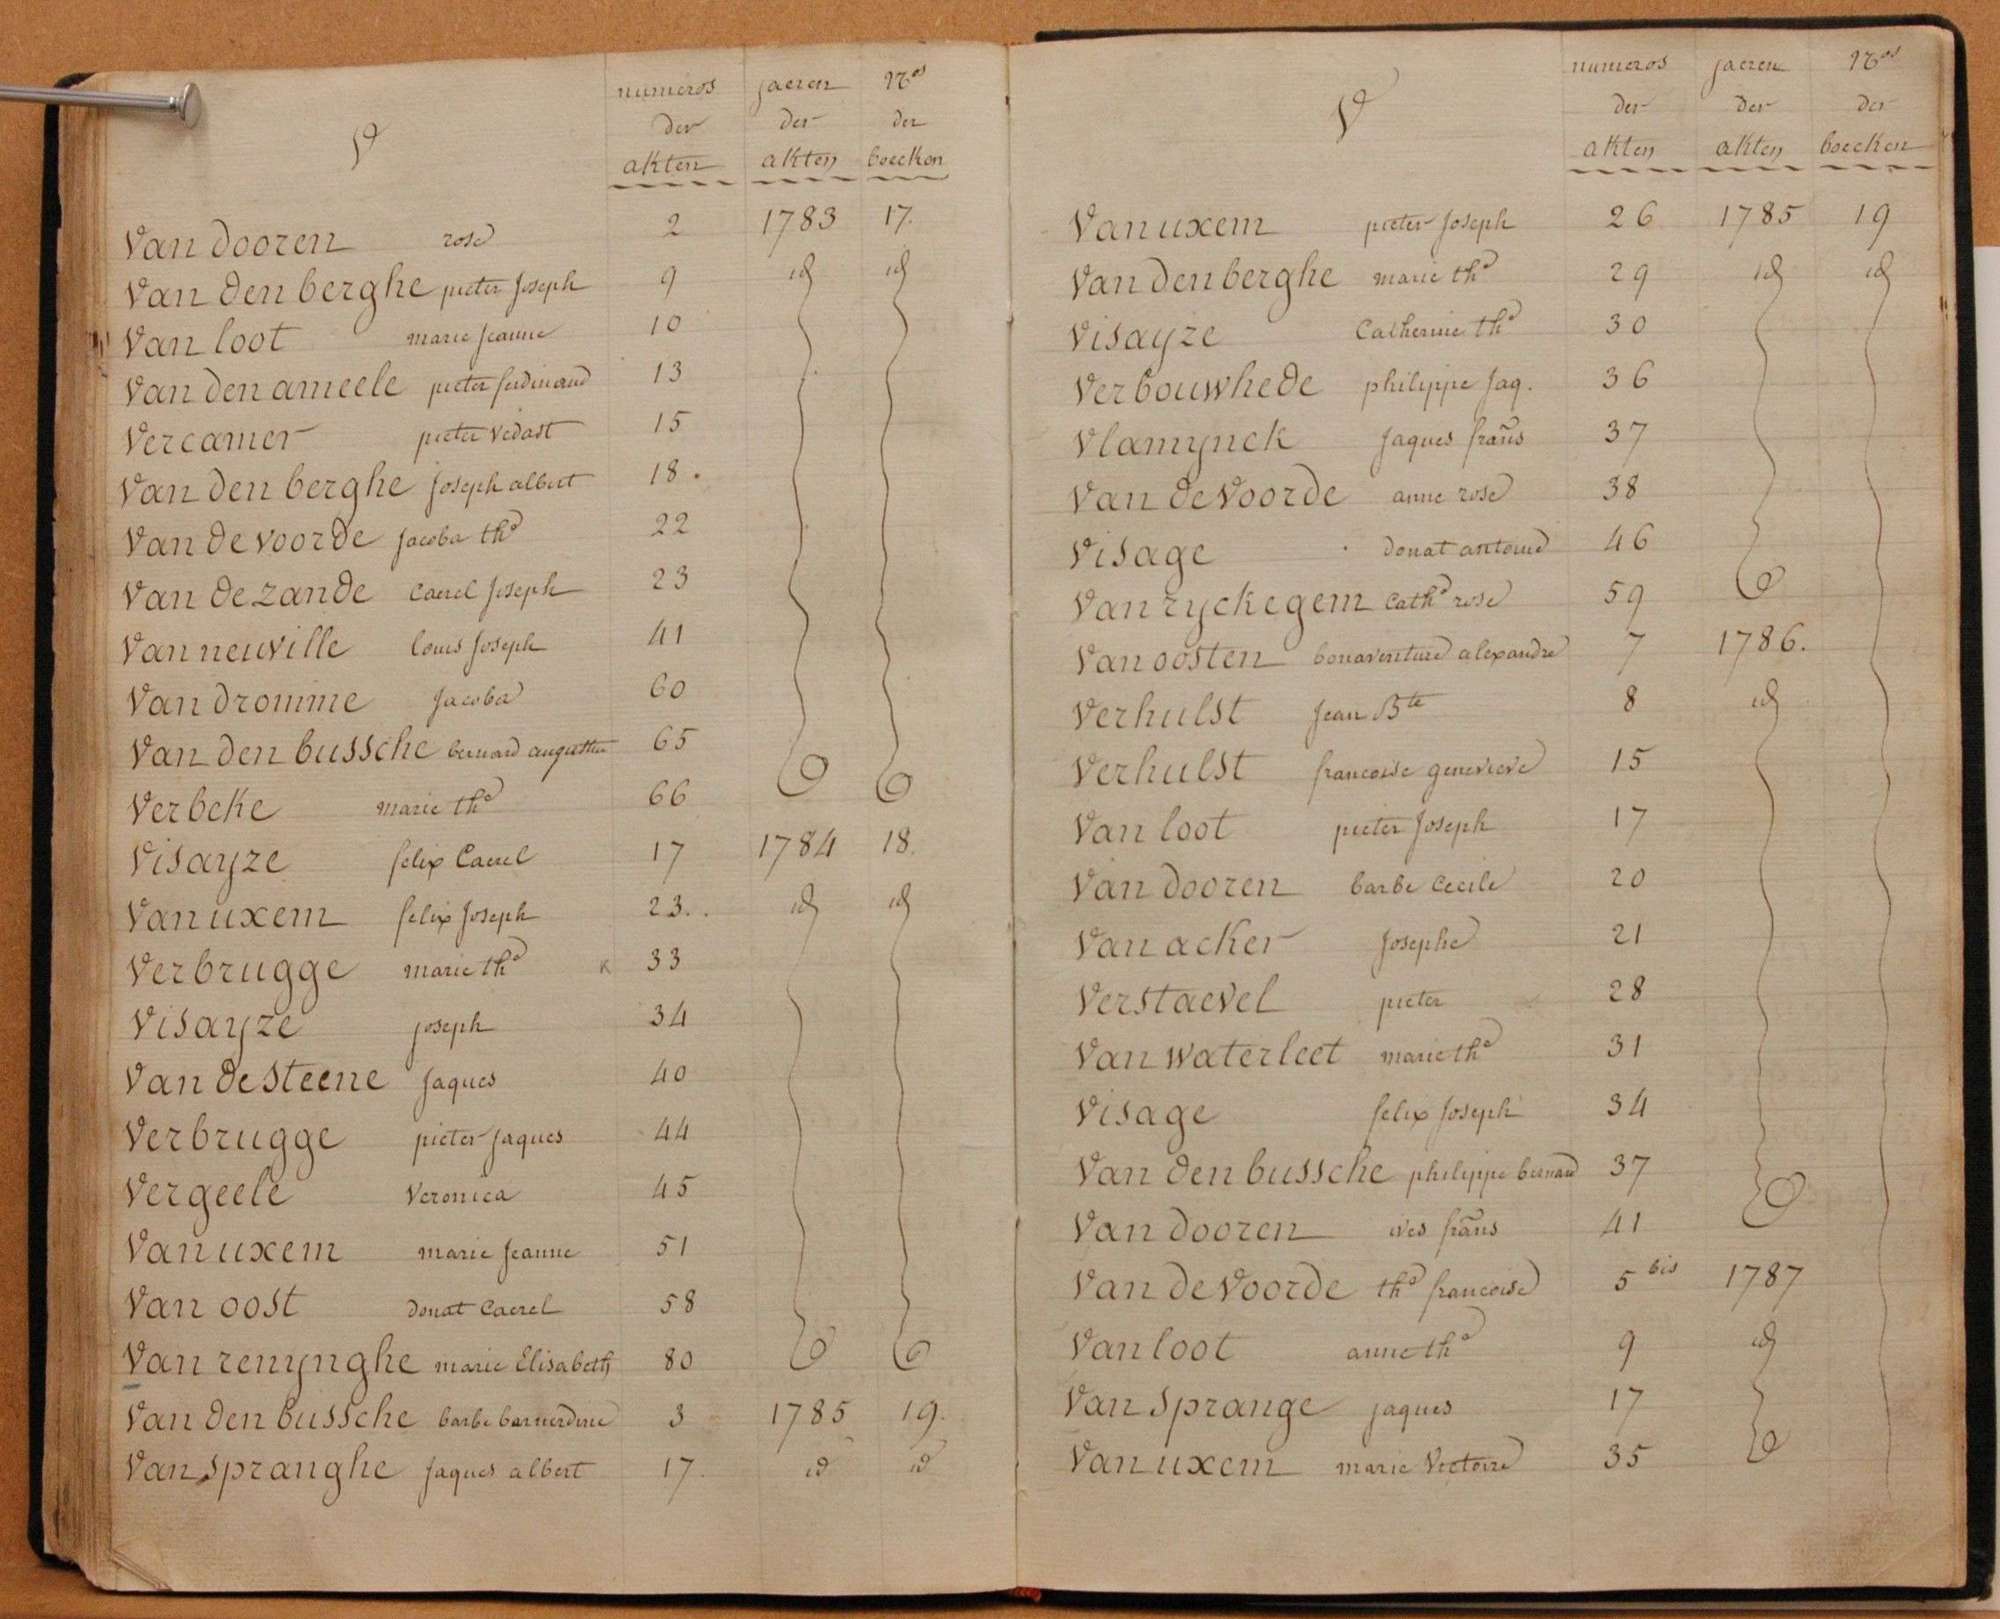 V numeros jaeren Nos
der der der
akten akten boecken
Van dooren rose 2 1783 17.
Van den berghe pieter Joseph 9 id id
Van loot marie Jeanne 10
Van den ameele pieter ferdinand 13
Vercamer pieter vedast 15
Van den berghe Joseph albert 18.
Van de voorde Jacoba the 22
Van de zande Caerel Joseph 23
Van neuville louis Joseph 41
Van dromme Jacoba 60
Van den bussche bernard augustin 65
Verbeke marie the 66
Visayze felix Caerel 17 1784 18.
Van uxem felix Joseph 23. id id
Verbrugge marie the 33
Visayze joseph 34
Van de steene Jaques 40
Verbrugge pieter Jaques 44
Vergeele Veronica 45
Van uxem marie Jeanne 51
Van oost donat Caerel 58
Van renynghe marie Elisabeth 80
Van den bussche barbe bernerdine 3 1785 19.
Van spranghe Jaques albert 17. id id
V numeros jaeren Nos
der der der
akten akten boecken
Van uxem pieter Joseph 26 1785 19
Van den berghe marie the 29 id id
Visayze Catherine the 30
Verbouwhede philippe Jaq. 36
Vlamynck Jaques frans 37
Van de Voorde anne rose 38
Visage donat antoine 46
Van ryckegem Cathe rose 59
Van oosten bonaventure alexandre 7 1786.
Verhulst Jean Bte 8 id
Verhulst francoise genevieve 15
Van loot pieter Joseph 17
Van dooren barbe Cecile 20
Van acker Josephe 21
Verstaevel pieter 28
Van waterleet marie the 31
Visage felix Joseph 34
Van den bussche philippe bernard 37
Van dooren ives frans 41
Van de Voorde the francoise 5 bis 1787
Van loot anne the 9 id
Van sprange jaques 17
Van uxem marie Victoire 35